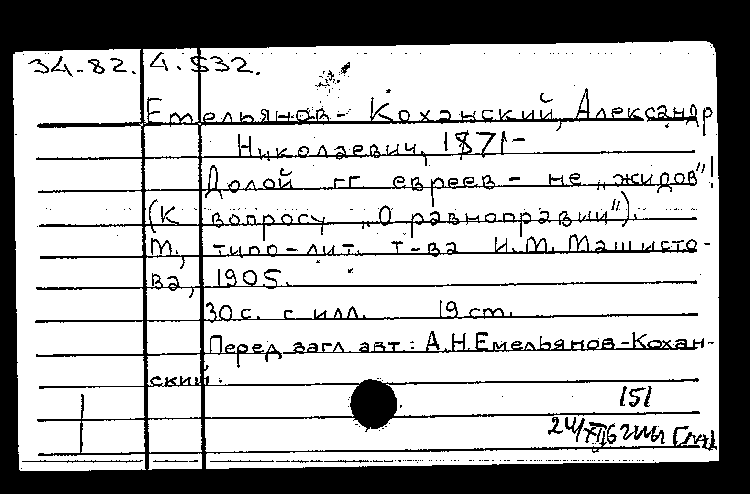 34-82. 4. 532.
Емельянов-Коханский, Александр
Николаевич, 1871-
Долой гг евреев - не „жидов"!
(К вопросу „О равноправии").
М., типо-лит. т-ва И.М. Машисто-
ва, 1905.
30 с. с илл. 19 cm.
Перед загл. авт.: А.Н.Емельянов-Кохан-
ский.
151